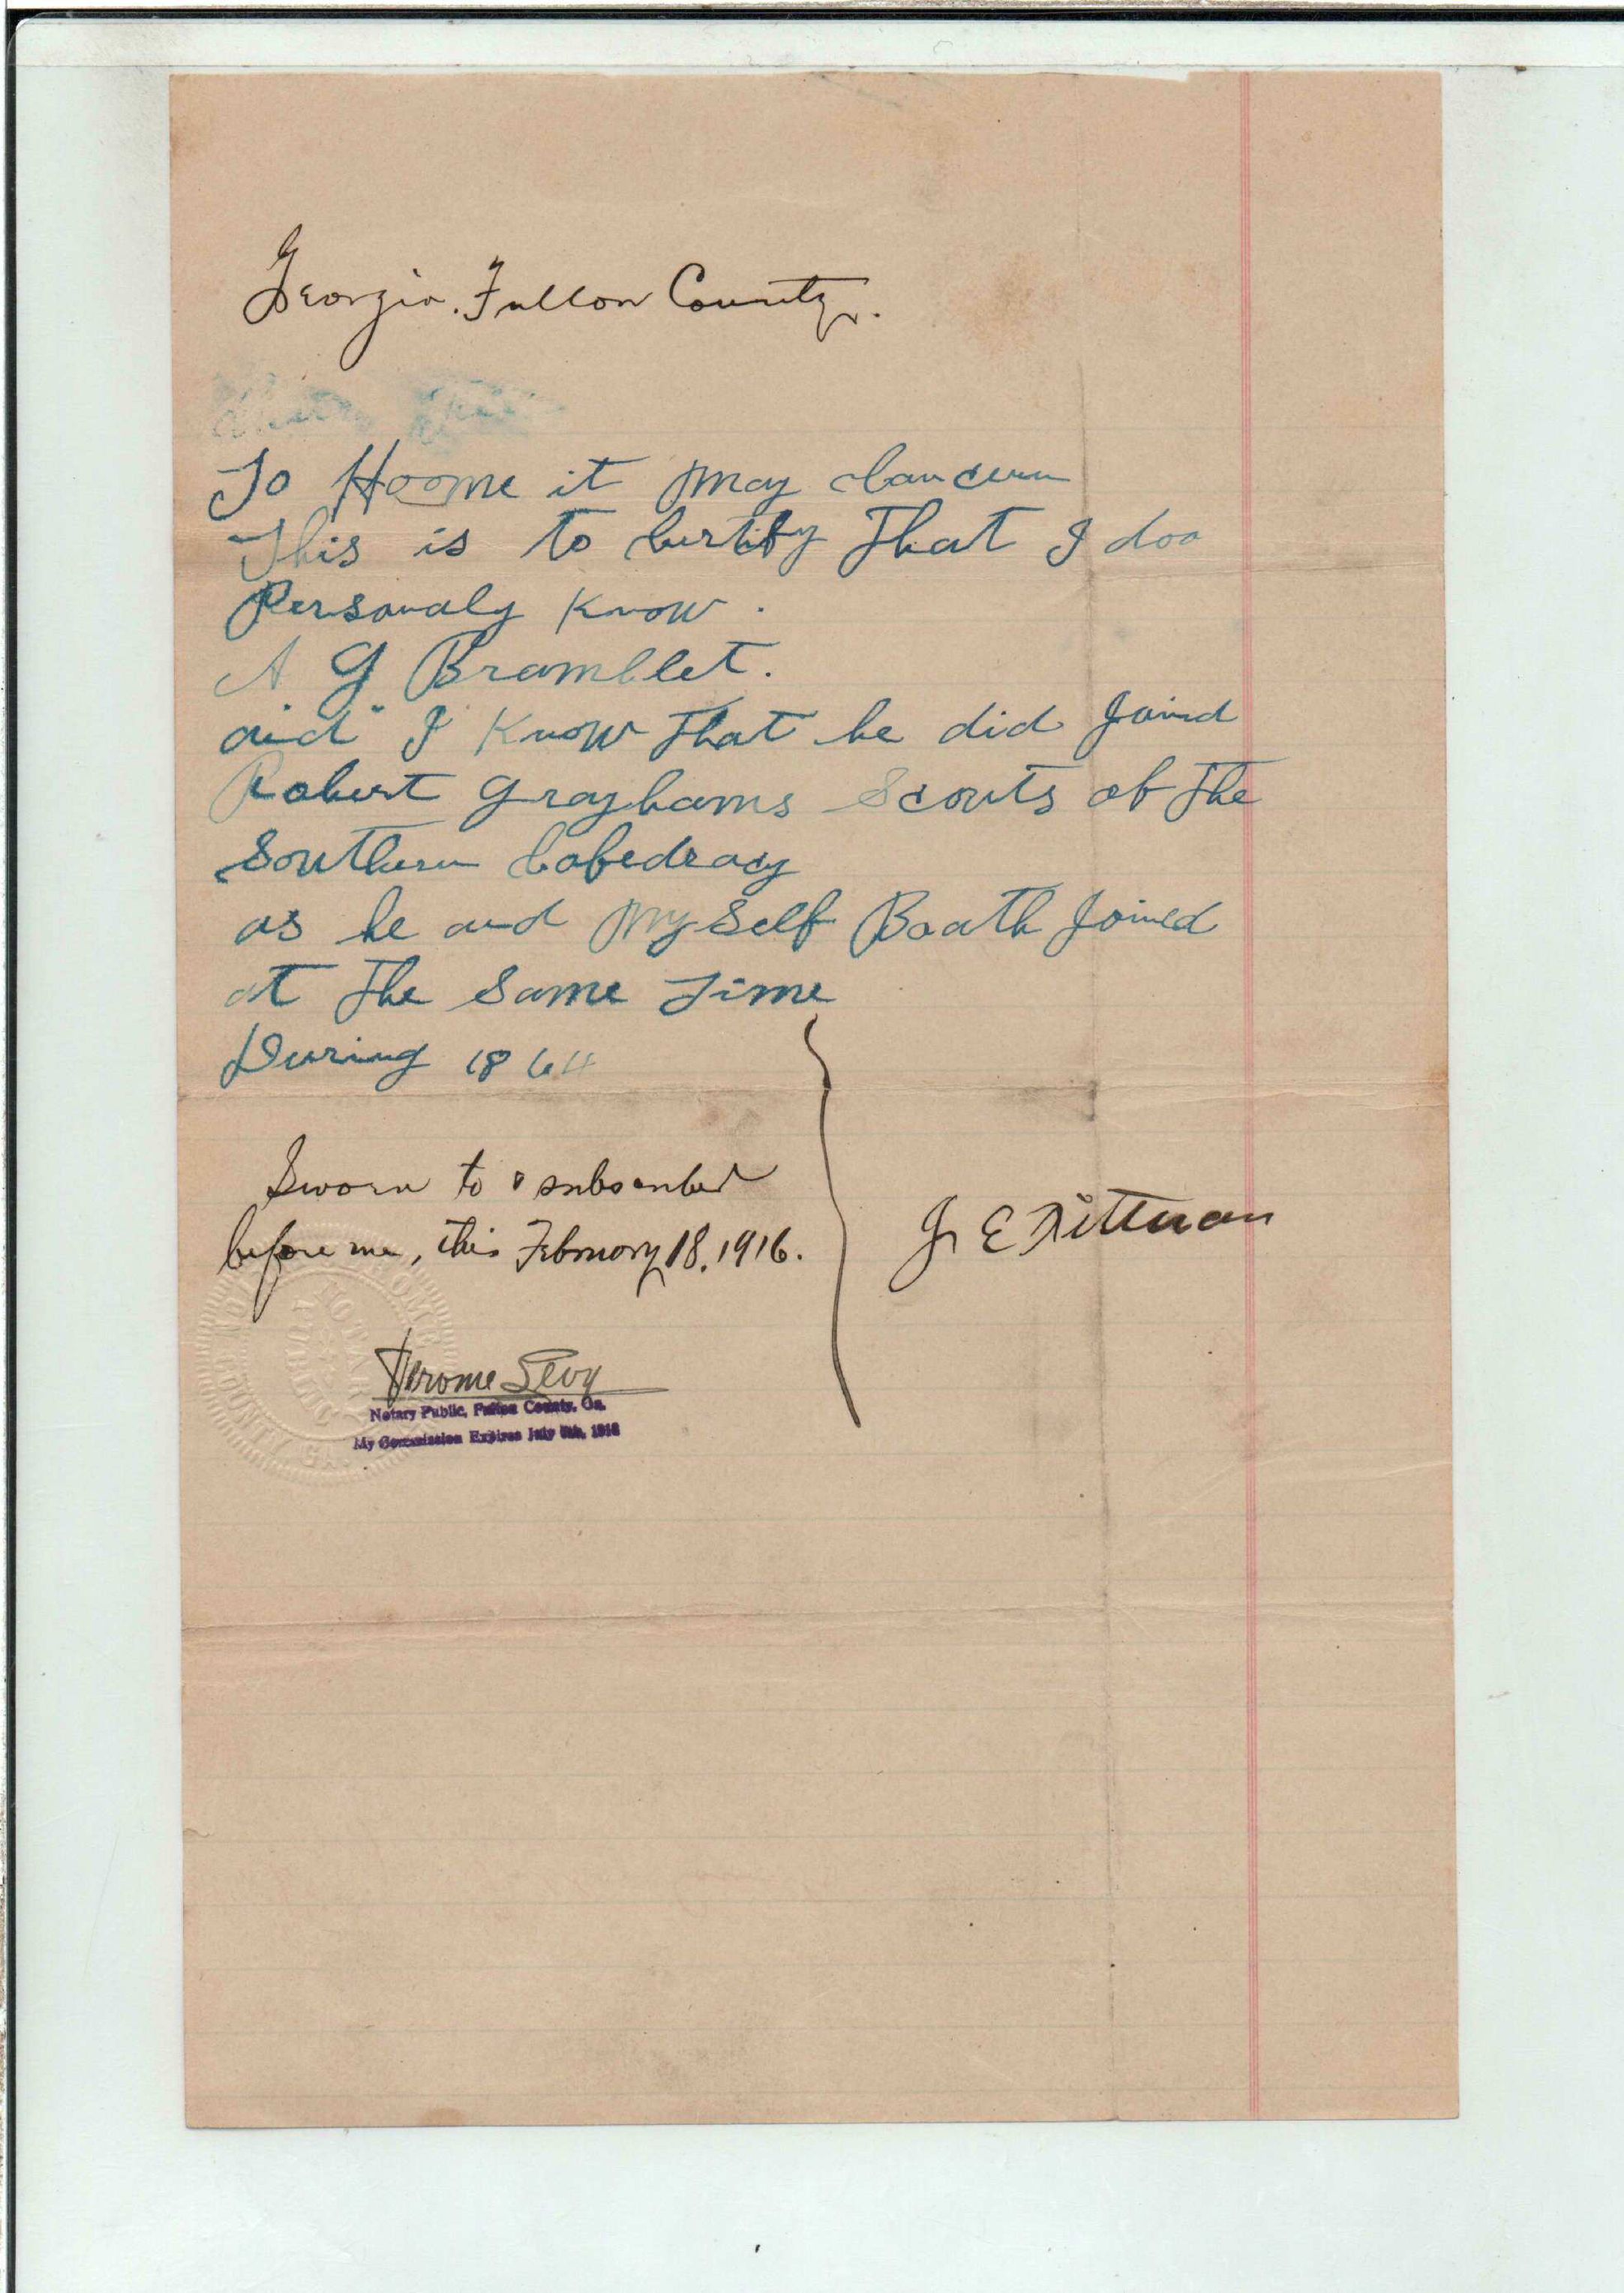 Georgia. Fulton County.
To Hoome it may Concern
This is to Certify That I doo
Personaly Know.
A G Bramblet.
and I Know That he did Joined
Robert Grayhams Scouts of The
Southern Cofedracy
as he and My Self Boath Joined
at The Same Time
During 1864
Sworn to & subscribed
before me, this February 18, 1916.
J E Pittman
Jerome Levy
Notary Public, Fulton County, Ga.
My Commission Expires July 1916
NOTARY PUBLIC
COUNTY GA.